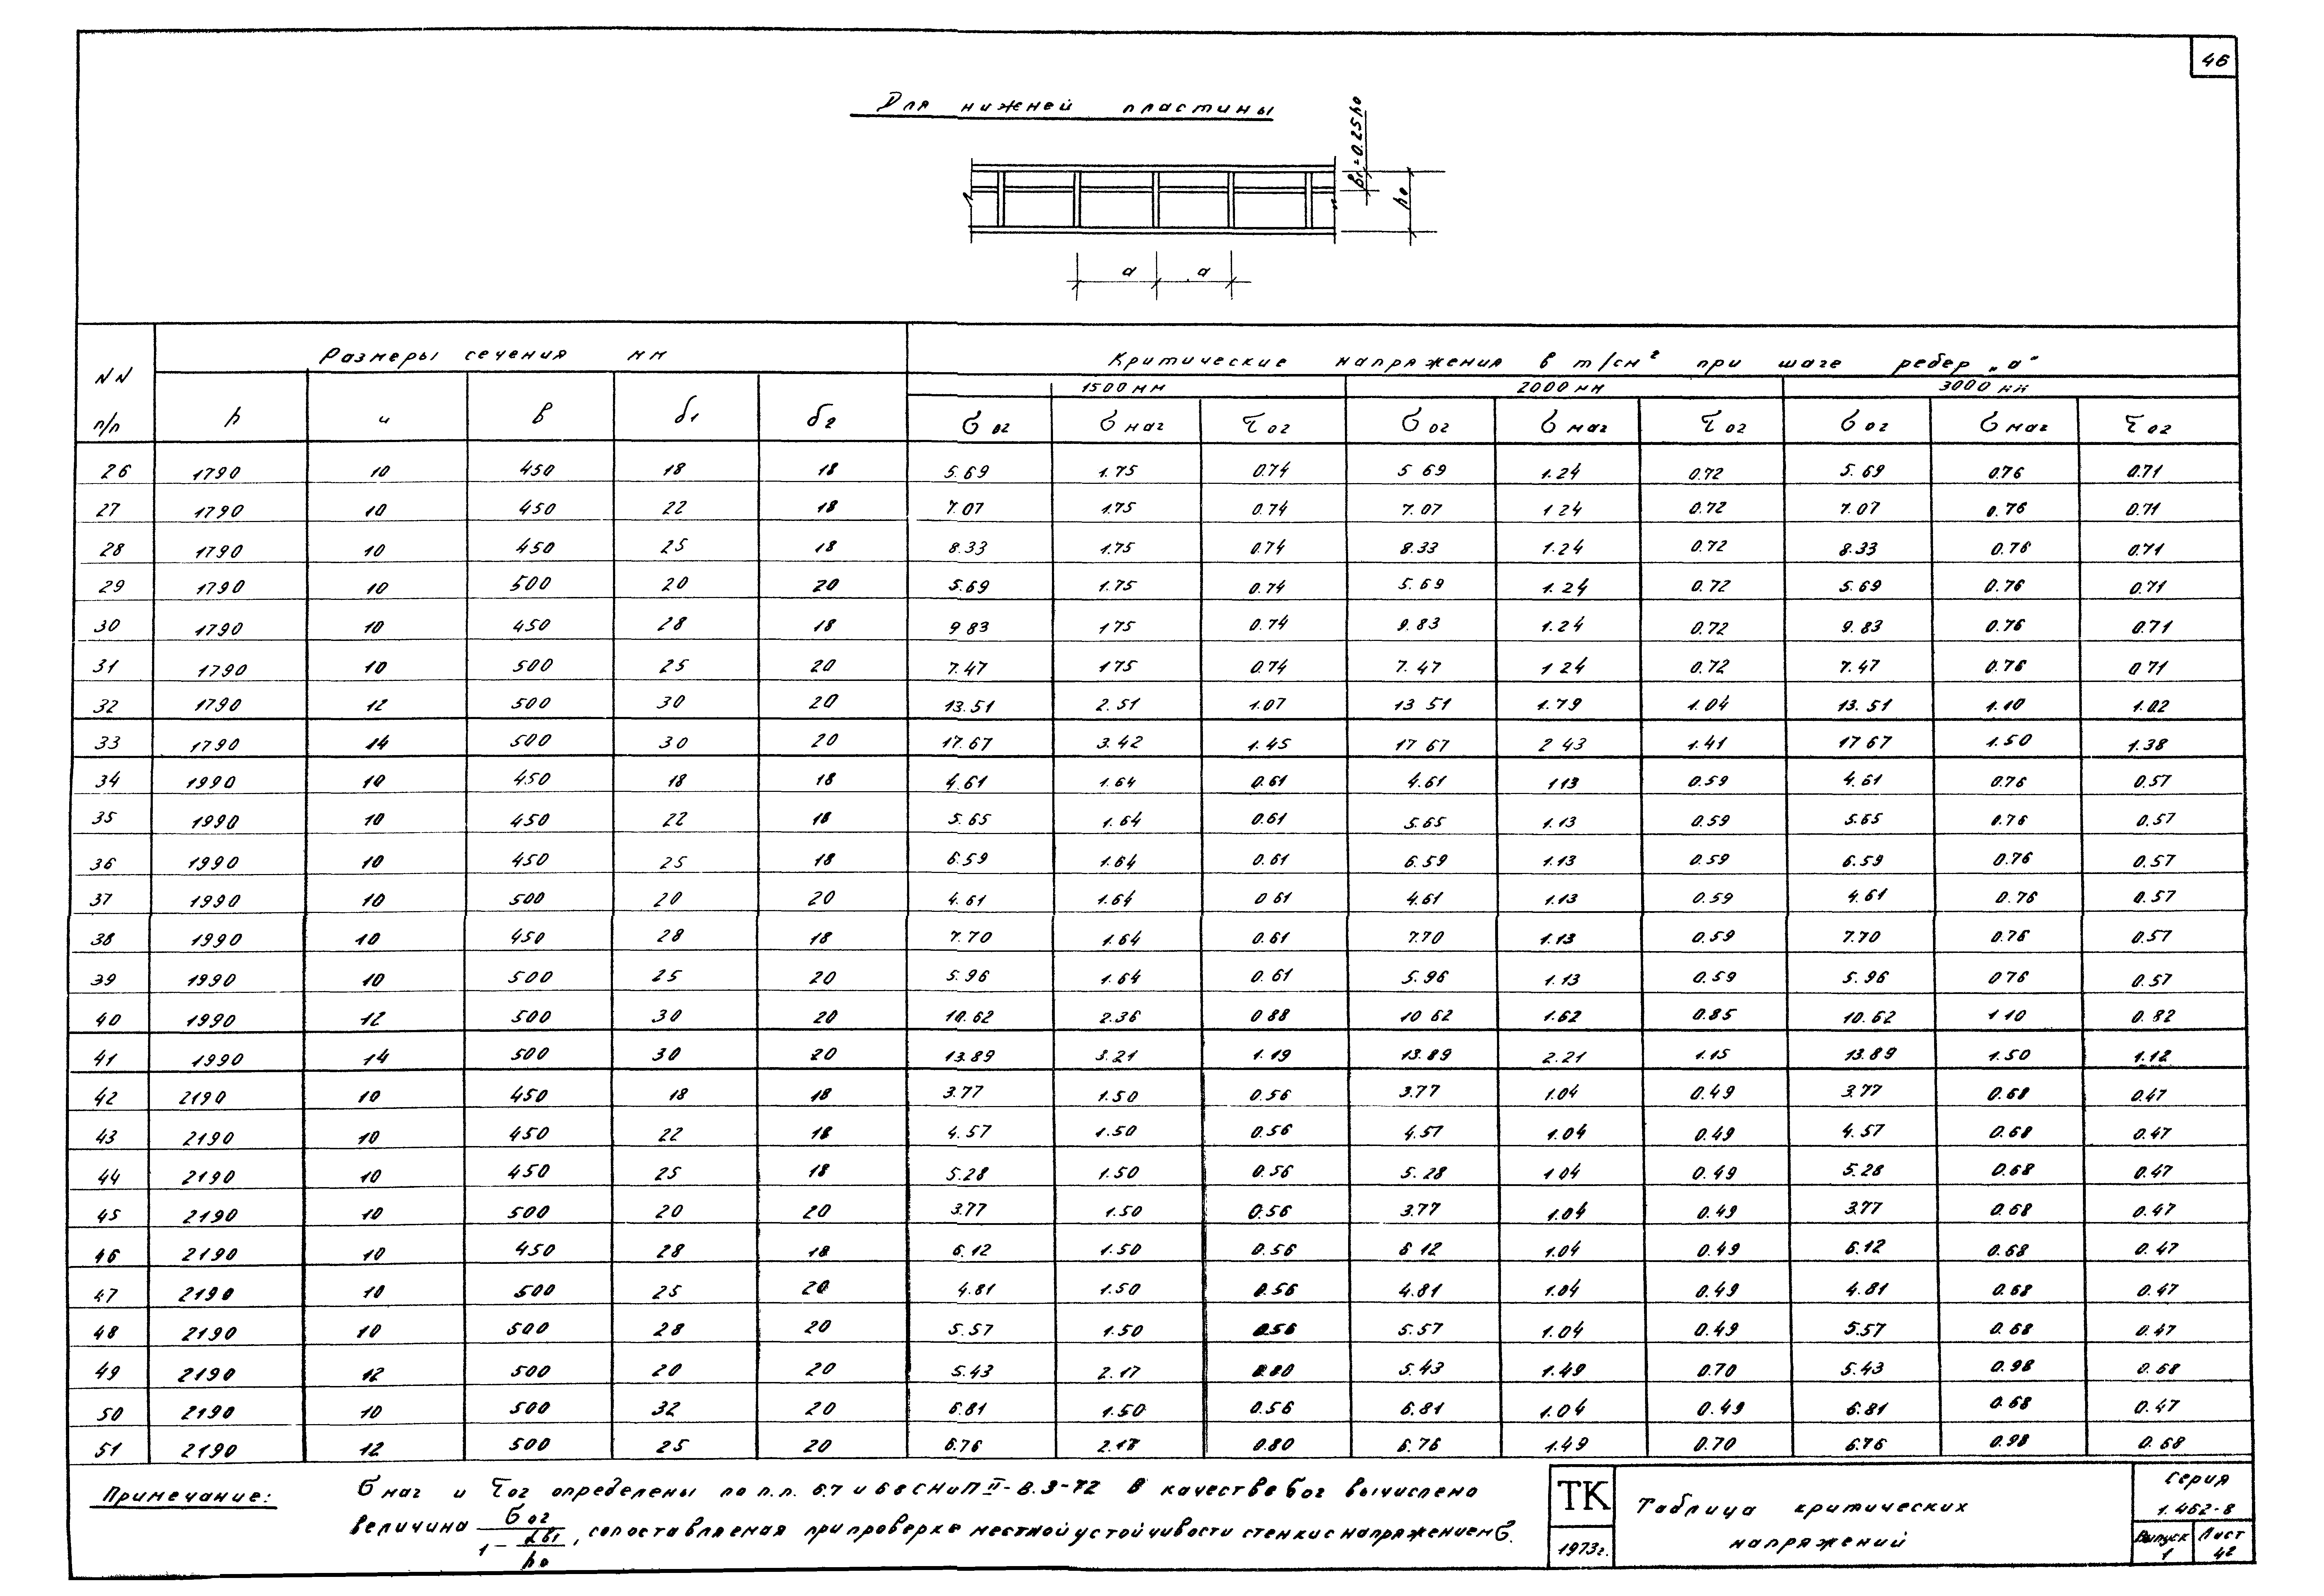 46
Для нижней пластины
в₁=0.25h₀
h₀
а а
NN п/п
Размеры сечения мм
Критические напряжения в т/см² при шаге ребер „а"
1500 мм 2000 мм 3000 мм
h и в δ₁ δ₂ σ ог σ маг τ ог σ ог σ маг τ ог σ ог σ маг τ ог
26 1790 10 450 18 18 5.69 1.75 0.74 5 69 1.24 0.72 5.69 0.76 0.71
27 1790 10 450 22 18 7.07 1.75 0.74 7.07 1 24 0.72 7.07 0.76 0.71
28 1790 10 450 25 18 8.33 1.75 0.74 8.33 1.24 0.72 8.33 0.76 0.71
29 1790 10 500 20 20 5.69 1.75 0.74 5.69 1.24 0.72 5.69 0.76 0.71
30 1790 10 450 28 18 9 83 1 75 0.74 9.83 1.24 0.72 9.83 0.76 0.71
31 1790 10 500 25 20 7.47 1 75 0.74 7.47 1 24 0.72 7.47 0.76 0 71
32 1790 12 500 30 20 13.51 2.51 1.07 13 51 1.79 1.04 13.51 1.10 1.02
33 1790 14 500 30 20 17.67 3.42 1.45 17 67 2 43 1.41 17 67 1.50 1.38
34 1990 10 450 18 18 4.61 1.64 0.61 4.61 1 13 0.59 4.61 0.76 0.57
35 1990 10 450 22 18 5.65 1.64 0.61 5.65 1.13 0.59 5.65 0.76 0.57
36 1990 10 450 25 18 6.59 1.64 0.61 6.59 1.13 0.59 6.59 0.76 0.57
37 1990 10 500 20 20 4.61 1.64 0 61 4.61 1.13 0.59 4.61 0.76 0.57
38 1990 10 450 28 18 7.70 1.64 0.61 7.70 1.13 0.59 7.70 0.76 0.57
39 1990 10 500 25 20 5.96 1.64 0.61 5.96 1.13 0.59 5.96 0 76 0.57
40 1990 12 500 30 20 10.62 2.36 0 88 10 62 1.62 0.85 10.62 1 10 0.82
41 1990 14 500 30 20 13.89 3.21 1.19 13.89 2.21 1.15 13.89 1.50 1.12
42 2190 10 450 18 18 3.77 1.50 0.56 3.77 1.04 0.49 3.77 0.68 0.47
43 2190 10 450 22 18 4.57 1.50 0.56 4.57 1.04 0.49 4.57 0.68 0.47
44 2190 10 450 25 18 5.28 1.50 0.56 5.28 1 04 0.49 5.28 0.68 0.47
45 2190 10 500 20 20 3.77 1.50 0.56 3.77 1.04 0.49 3.77 0.68 0.47
46 2190 10 450 28 18 6.12 1.50 0.56 6 12 1.04 0.49 6.12 0.68 0.47
47 2190 10 500 25 20 4.81 1.50 0.56 4.81 1.04 0.49 4.81 0.68 0.47
48 2190 10 500 28 20 5.57 1.50 0.56 5.57 1.04 0.49 5.57 0.68 0.47
49 2190 12 500 20 20 5.43 2.17 0.80 5.43 1.49 0.70 5.43 0.98 0.68
50 2190 10 500 32 20 6.81 1.50 0.56 6.81 1.04 0.49 6.81 0.68 0.47
51 2190 12 500 25 20 6.76 2.17 0.80 6.76 1.49 0.70 6.76 0.98 0.68
Примечание: σ маг и τ ог определены по п.п. 6.7 и 6 8 СНиП II-В.3-72 В качестве σ ог вычислена
величина σ ог / 1 - αв₁/h₀ , сопоставляемая при проверке местной устойчивости стенки с напряжением σ.
ТК
1973г.
Таблица критических
напряжений
Серия
1.462-8
Выпуск 1
Лист 42